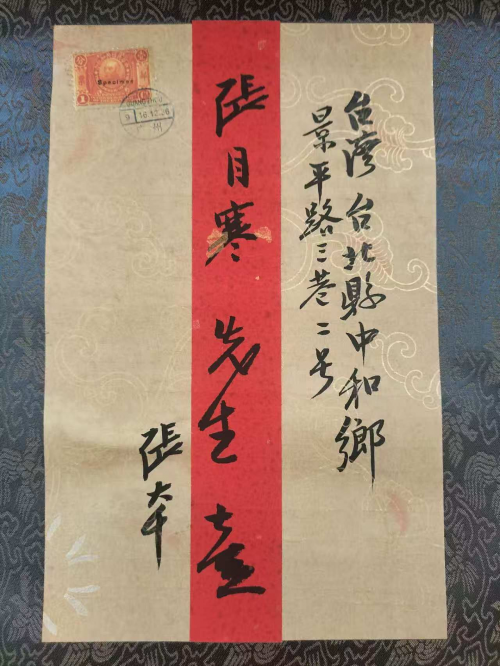 台灣台北縣中和鄉
景平路三巷二号
張目寒先生
張大千
Specimen
1
州